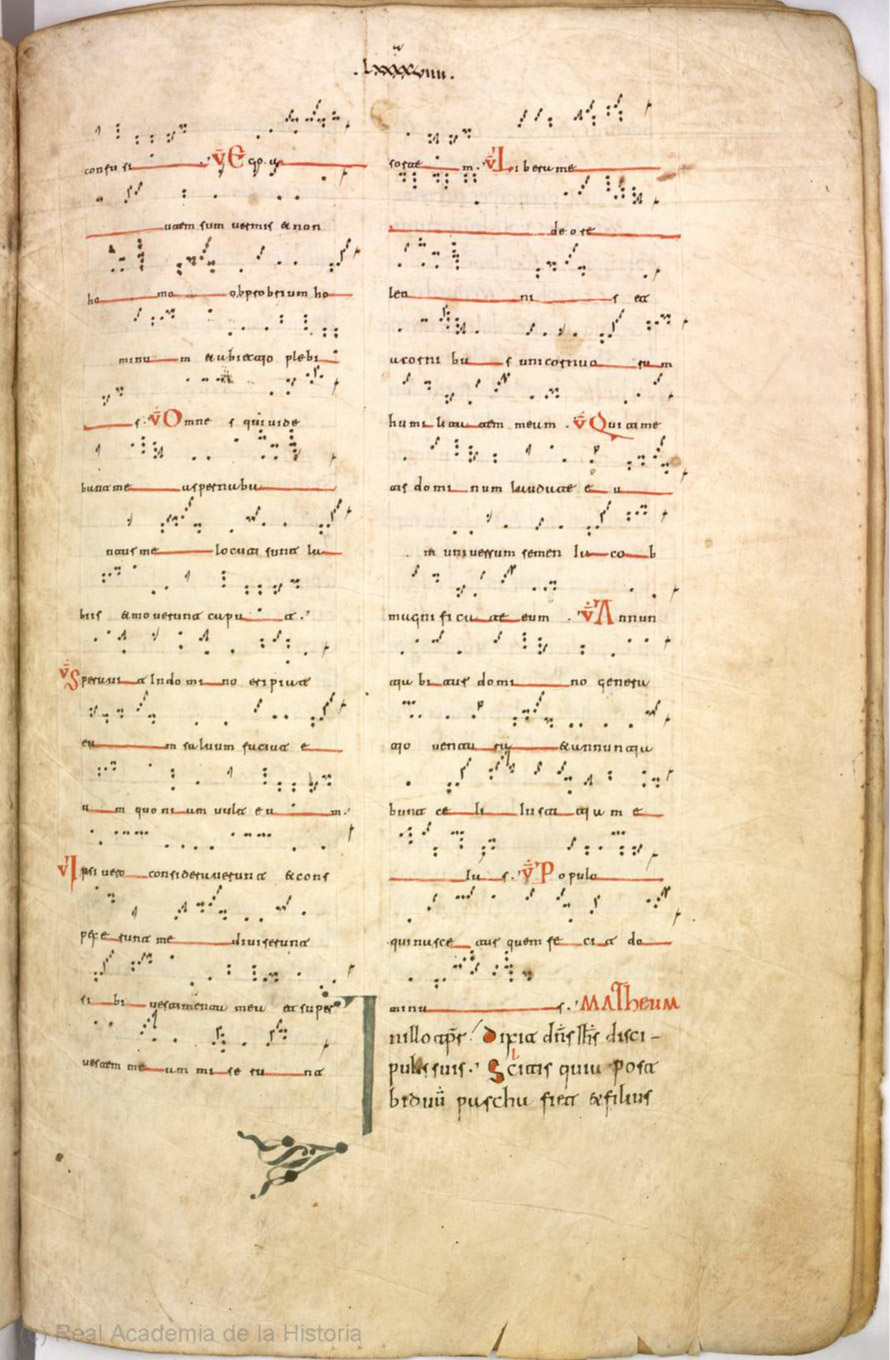 .lxxxxviiii.
confusi . V̄ Ego u
uaem sum uermis & non
ho mo obprobrium ho
minu m & abiectio plebi
s. V̄ Omne s qui uide
bant me aspernaba
natur me locuti sunt la
biis & mouerunt capu t.
V̄ Speraui t In domi no eripiat
eu m saluum faciat e
u m quoni am uult eu m.
V̄ Ipsi uero considerauerunt & cons
pexerunt me diuiserunt
si bi uestimenta mea et super
uestem me am mi se ru nt
sorte m. V̄ Libera me
de ore
leo ni s et
a corni bu s unicornuo rum
humi lita tem meam . V̄ Qui time
tis domi num laudate e u
m uniuersum semen Ia co b
magnificate eum . V̄ Annun
tia bi tur domi no genera
tio uentu ra & annuntia
bunt ce li Iusti tia m e
Iu s. V̄ Populo
qui nasce tur quem fe ci t do
minu s. MATheum
nillo tp̄r Dixit dn̄s Ih̄s disci-
pulis suis. Scitis quia post
biduū pascha fiet & filius
(c) Real Academia de la Historia